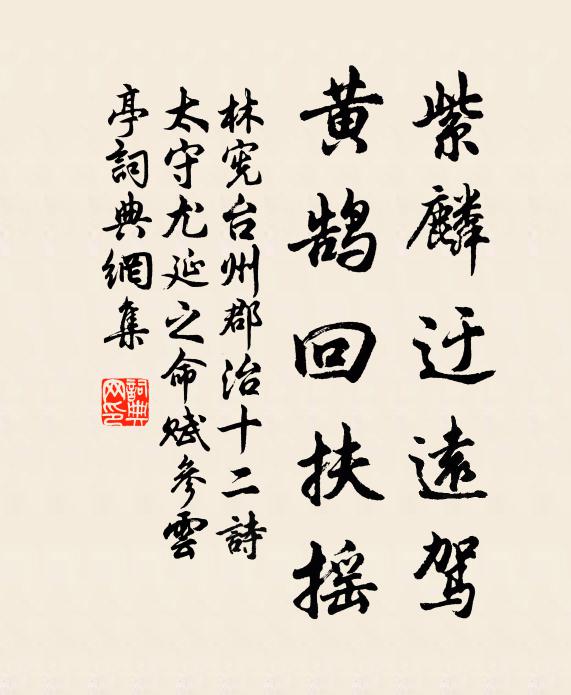 紫麟迂遠駕
黄鹄回扶摇
林宪台州郡治十二詩
太守尤延之命赋参雲
亭詞典網集
詞典
网印